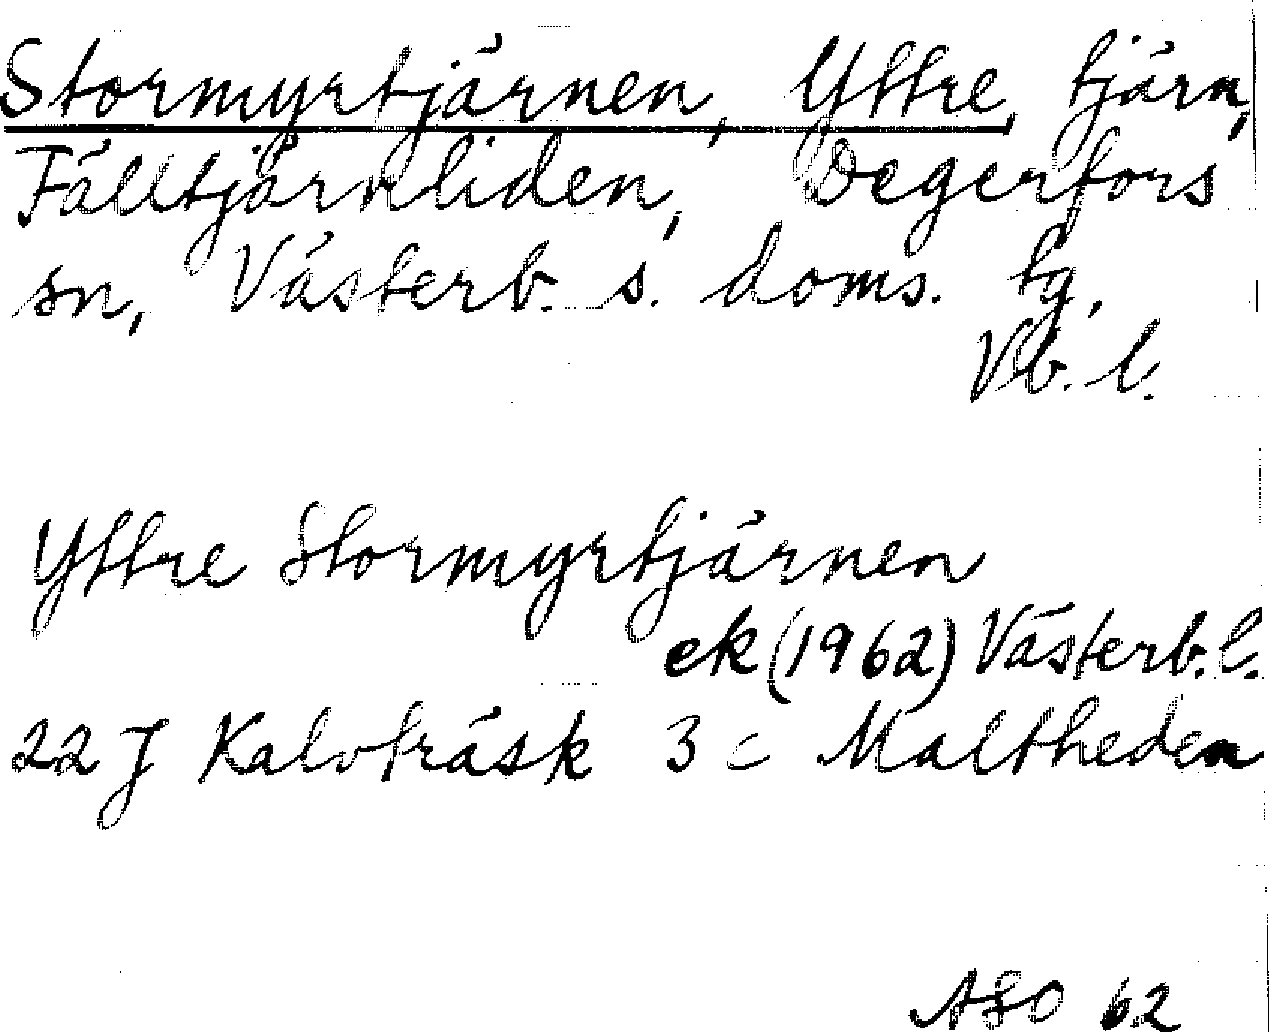 Stormyrtjärnen, Yttre, tjärn,
Fälltjärnliden, Degerfors
sn, Västerb. s. doms. tg,
Vb. l.
Yttre Stormyrtjärnen
ek (1962) Västerb. l.
22 J Kalvträsk 3 c Maltheden
ASO 62